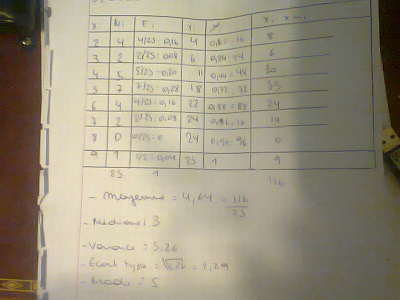 xi ni Fi xi × ni
2 4 4/25=0,16 4 0,16=16 8
3 2 2/25=0,08 6 0,24=24 6
4 5 5/25=0,20 11 0,44=44 20
5 7 7/25=0,28 18 0,72=72 35
6 4 4/25=0,16 22 0,88=88 24
7 2 2/25=0,08 24 0,96=96 14
8 0 0/25=0 24 0,96=96 0
9 1 1/25=0,04 25 1 9
25 1 116
- Moyenne = 4,64 = 116/25
- Médiane : 3
- Variance = 5,26
- Ecart type = √5,26 = 2,29
- Mode : 5